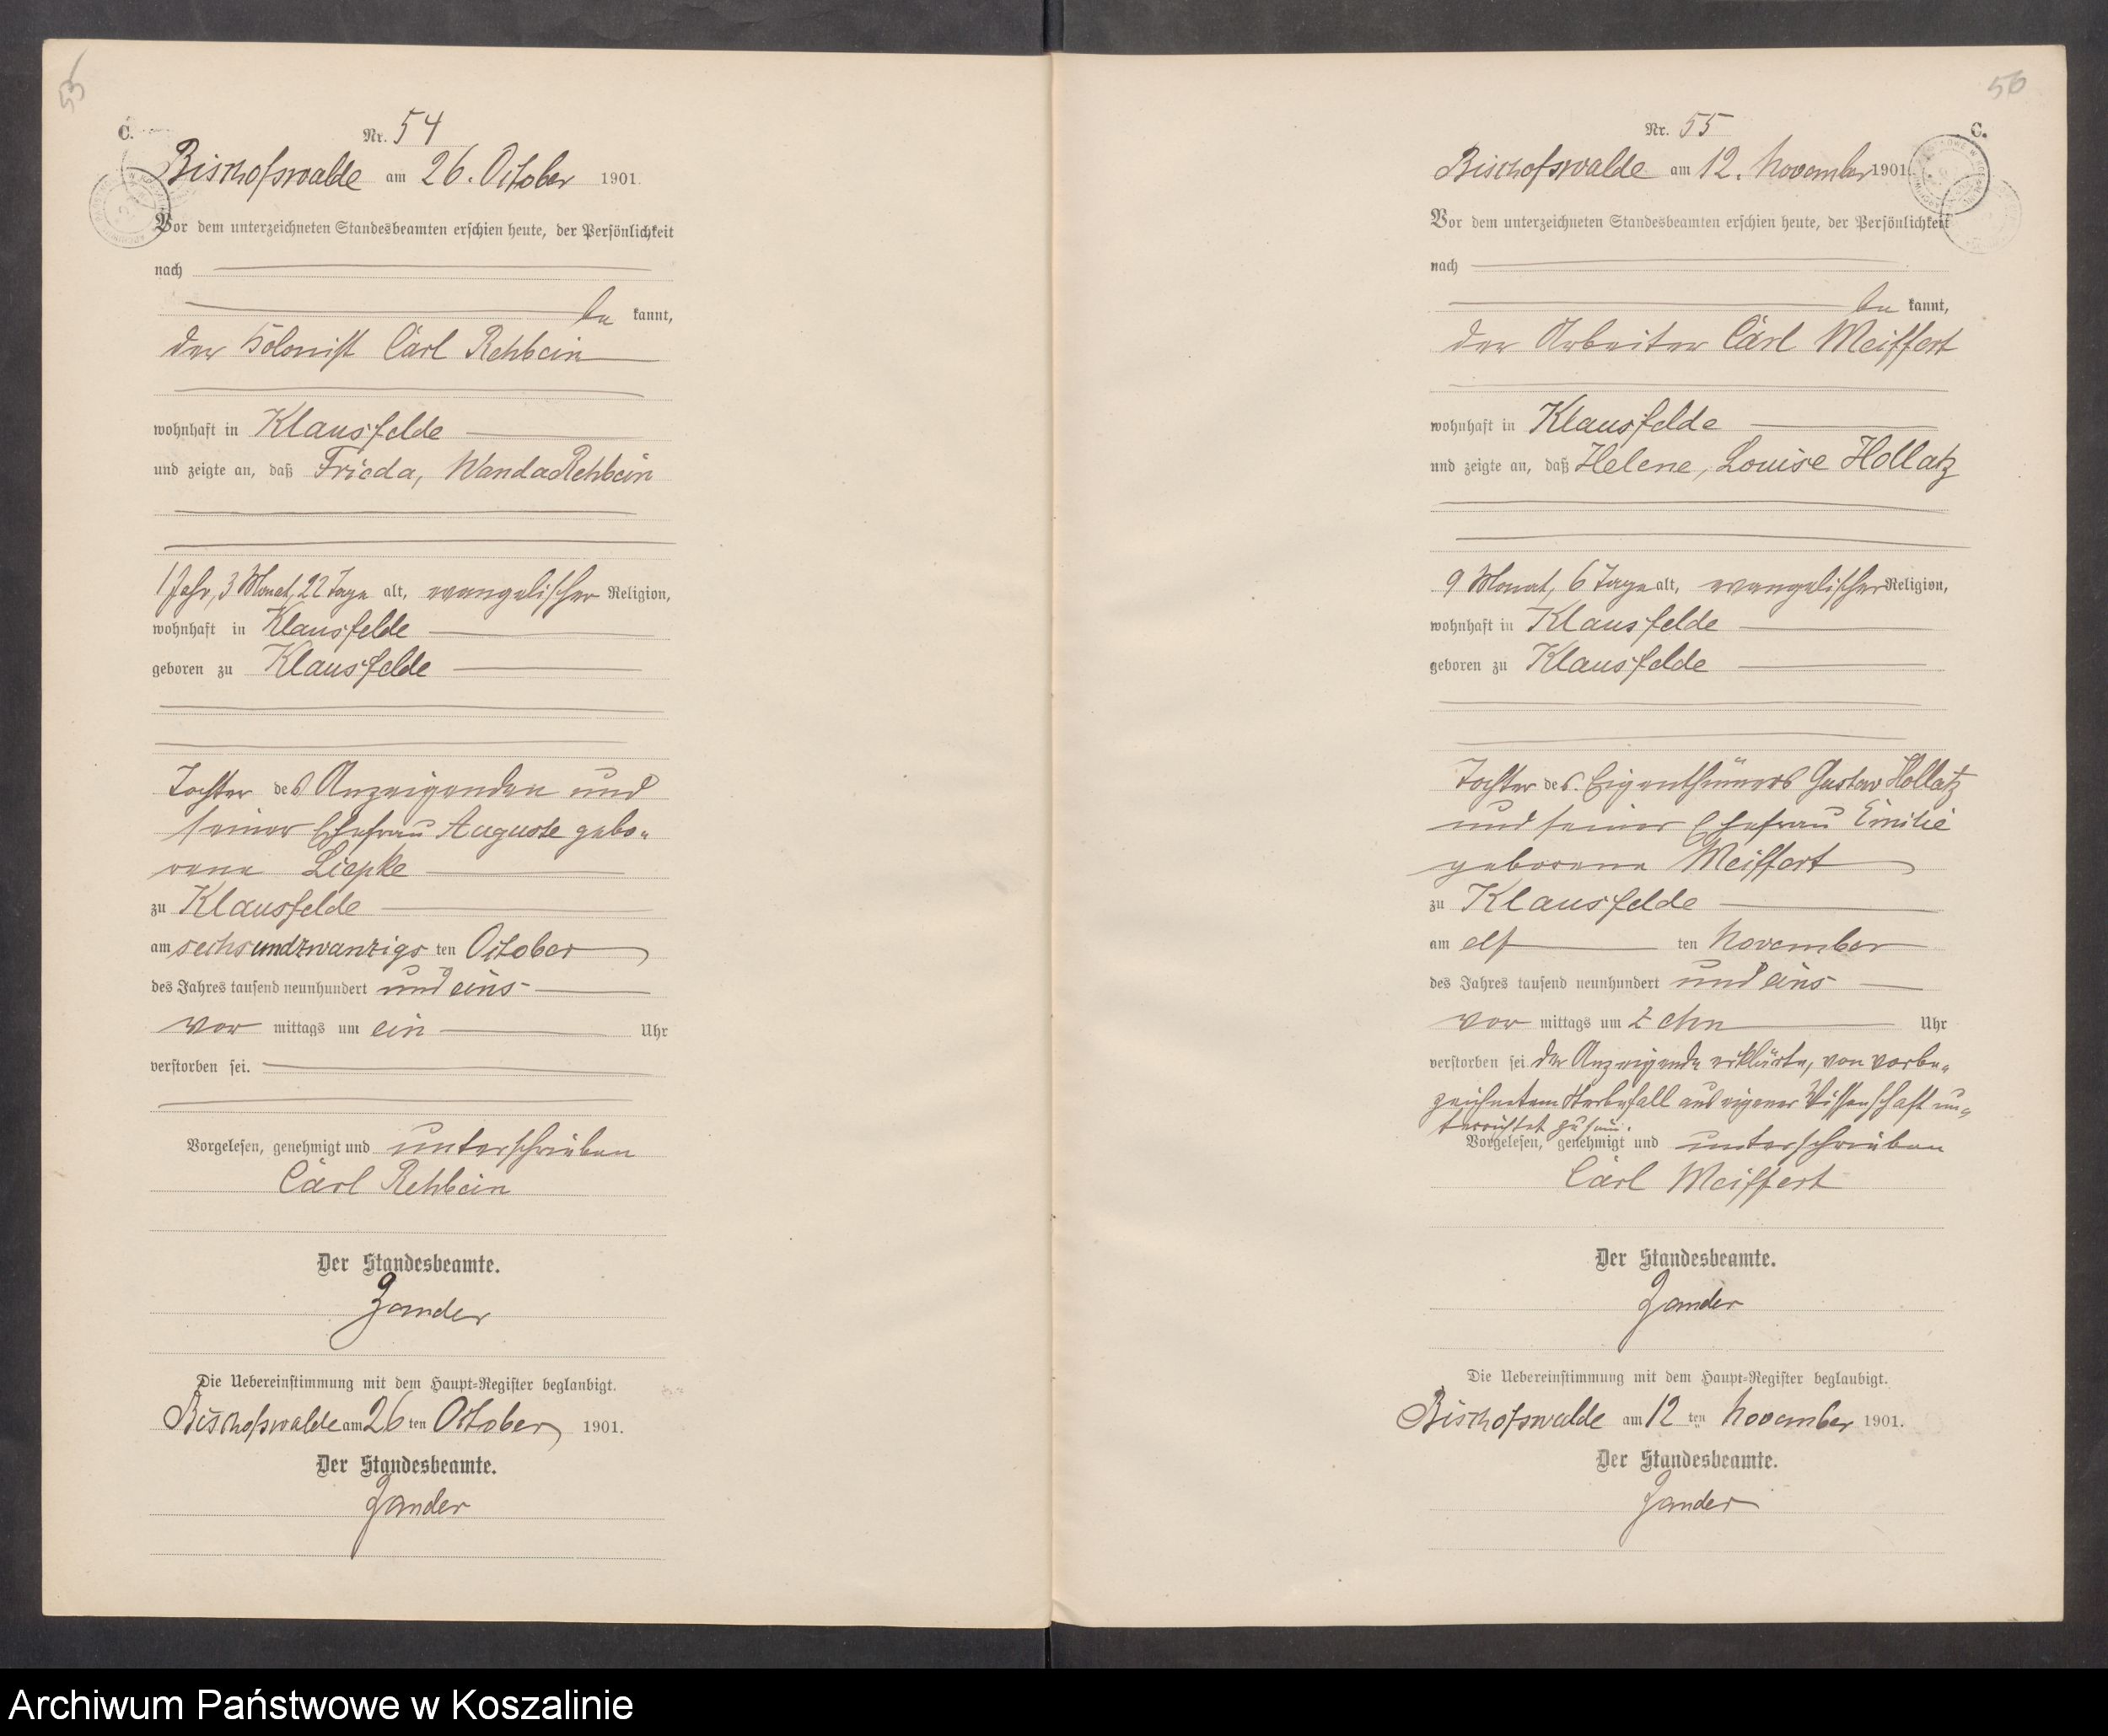 55
C.
Nr. 54
Bischofswalde am 26. October 1901.
Vor dem unterzeichneten Standesbeamten erschien heute, der Persönlichkeit
nach
be kannt,
der Kolonist Carl Rehbein
wohnhaft in Klausfelde
und zeigte an, daß Frieda, Wanda Rehbein
1 Jahr, 3 Monat, 22 Tage alt, evangelischer Religion,
wohnhaft in Klausfelde
geboren zu Klausfelde
Tochter des Anzeigenden und
seiner Ehefrau Auguste gebo-
rene Liepke
zu Klausfelde
am sechsundzwanzigs ten October
des Jahres tausend neunhundert und eins
vor mittags um ein Uhr
verstorben sei.
Vorgelesen, genehmigt und unterschrieben
Carl Rehbein
Der Standesbeamte.
Zander
Die Uebereinstimmung mit dem Haupt-Register beglaubigt.
Bischofswalde am 26 ten October 1901.
Der Standesbeamte.
Zander
56
C.
Nr. 55
Bischofswalde am 12. November 1901.
Vor dem unterzeichneten Standesbeamten erschien heute, der Persönlichkeit
nach
be kannt,
der Arbeiter Carl Meiffert
wohnhaft in Klausfelde
und zeigte an, daß Helene, Louise Hollatz
9 Monat, 6 Tage alt, evangelischer Religion,
wohnhaft in Klausfelde
geboren zu Klausfelde
Tochter des Eigenthümers Gustav Hollatz
und seiner Ehefrau Emilie
geborene Meiffert
zu Klausfelde
am elf ten November
des Jahres tausend neunhundert und eins
vor mittags um zehn Uhr
verstorben sei der Anzeigende erklärte, von vorbe-
zeichnetem Sterbefall aus eigener Wissenschaft un-
terrichtet zu sein.
Vorgelesen, genehmigt und unterschrieben
Carl Meiffert
Der Standesbeamte.
Zander
Die Uebereinstimmung mit dem Haupt-Register beglaubigt.
Bischofswalde am 12 ten November 1901.
Der Standesbeamte.
Zander
Archiwum Państwowe w Koszalinie